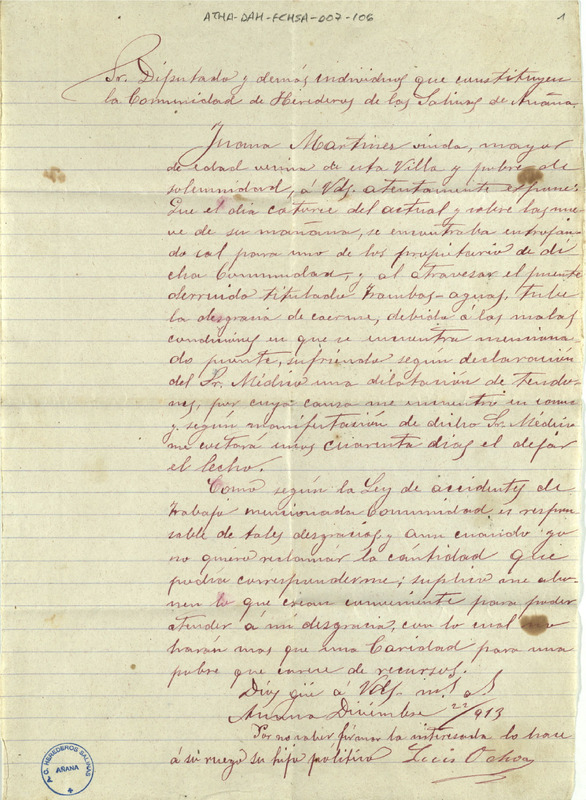 ATHA-DAH-FCHSA-007-106
1
Sr. Diputado y demás individuos que constituyen
la Comunidad de Herederos de las Salinas de Añana
Juana Martinez viuda, mayor
de edad vecina de esta Villa y pobre de
solemnidad, á Vds. atentamente expone:
Que el dia catorce del actual y sobre las nue
ve de su mañana, se encontraba entrojan
do sal para uno de los propietario de di
cha Comunidad, y al atravesar el puente
derruido titulado Trambas-aguas, tube
la desgracia de caerme, debido á las malas
condiciones en que se encuentra menciona
do puente, sufriendo según declaración
del Sr. Médico una dilatación de tendo
nes, por cuya causa me encuentro en cama
y según manifestación de dicho Sr. Médico
me costará unos cuarenta dias el dejar
el lecho.
Como según la Ley de accidentes de
trabajo mencionada Comunidad es respon
sable de tales desgracias, y aun cuando yo
no quiero reclamar la cantidad que
podria corresponderme; suplico me abo
nen lo que crean conveniente para poder
atender a mi desgracia, con lo cual no
harán mas que una Caridad para una
pobre que carece de recursos.
Dios güe á Vds. m.s a.s
Añana Diciembre 22/913
Por no saber firmar la interesada lo hace
á su ruego su hijo pólitico Luis Ochoa
C. HEREDEROS SALINAS
AÑANA